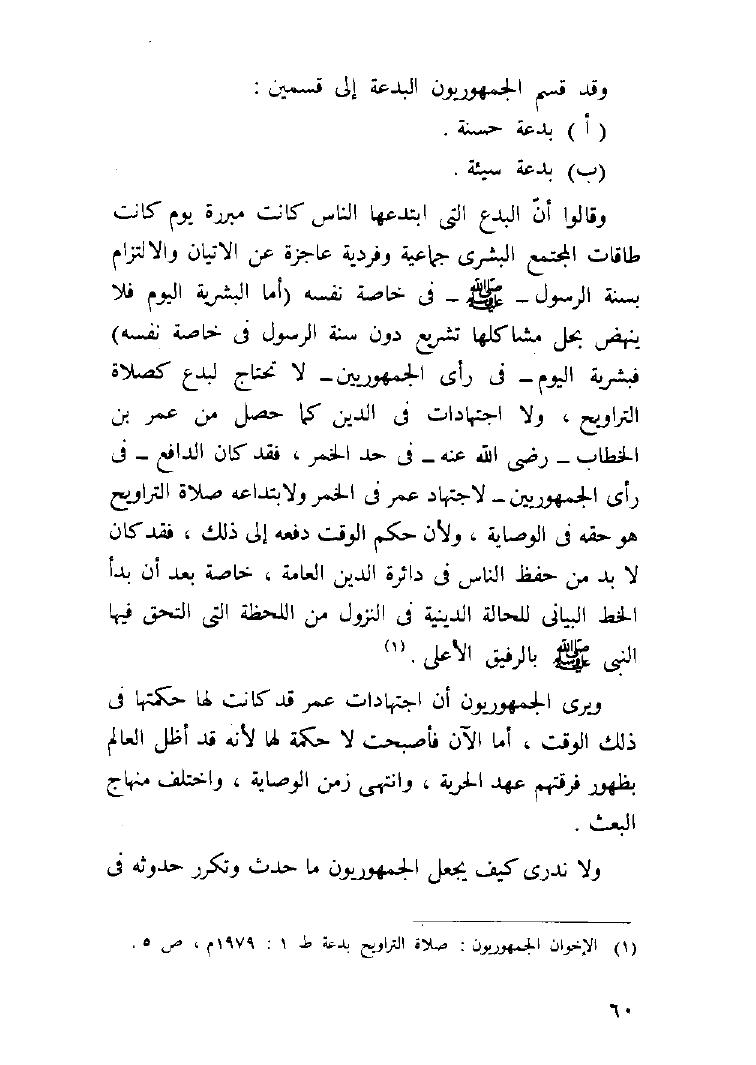 وقد قسم الجمهوريون البدعة إلى قسمين :
( أ ) بدعة حسنة .
(ب) بدعة سيئة .
وقالوا أنّ البدع التى ابتدعها الناس كانت مبررة يوم كانت
طاقات المجتمع البشرى جماعية وفردية عاجزة عن الاتيان والالتزام
بسنة الرسول ــ ﷺ ــ فى خاصة نفسه (أما البشرية اليوم فلا
ينهض بحل مشاكلها تشريع دون سنة الرسول فى خاصة نفسه)
فبشرية اليوم ــ فى رأى الجمهوريين ــ لا تحتاج لبدع كصلاة
التراويح ، ولا اجتهادات فى الدين كما حصل من عمر بن
الخطاب ــ رضى الله عنه ــ فى حد الخمر ، فقد كان الدافع ــ فى
رأى الجمهوريين ــ لاجتهاد عمر فى الخمر ولابتداعه صلاة التراويح
هو حقه فى الوصاية ، ولأن حكم الوقت دفعه إلى ذلك ، فقد كان
لا بد من حفظ الناس فى دائرة الدين العامة ، خاصة بعد أن بدأ
الخط البيانى للحالة الدينية فى النزول من اللحظة التى التحق فيها
النبى ﷺ بالرفيق الأعلى .(١)
ويرى الجمهوريون أن اجتهادات عمر قد كانت لها حكمتها فى
ذلك الوقت ، أما الآن فأصبحت لا حكمة لها لأنه قد أظل العالم
بظهور فرقتهم عهد الحرية ، وانتهى زمن الوصاية ، واختلف منهاج
البعث .
ولا ندرى كيف يجعل الجمهوريون ما حدث وتكرر حدوثه فى
(١) الإخوان الجمهوريون : صلاة التراويح بدعة ط ١ : ١٩٧٩م ، ص ٥ .
٦٠